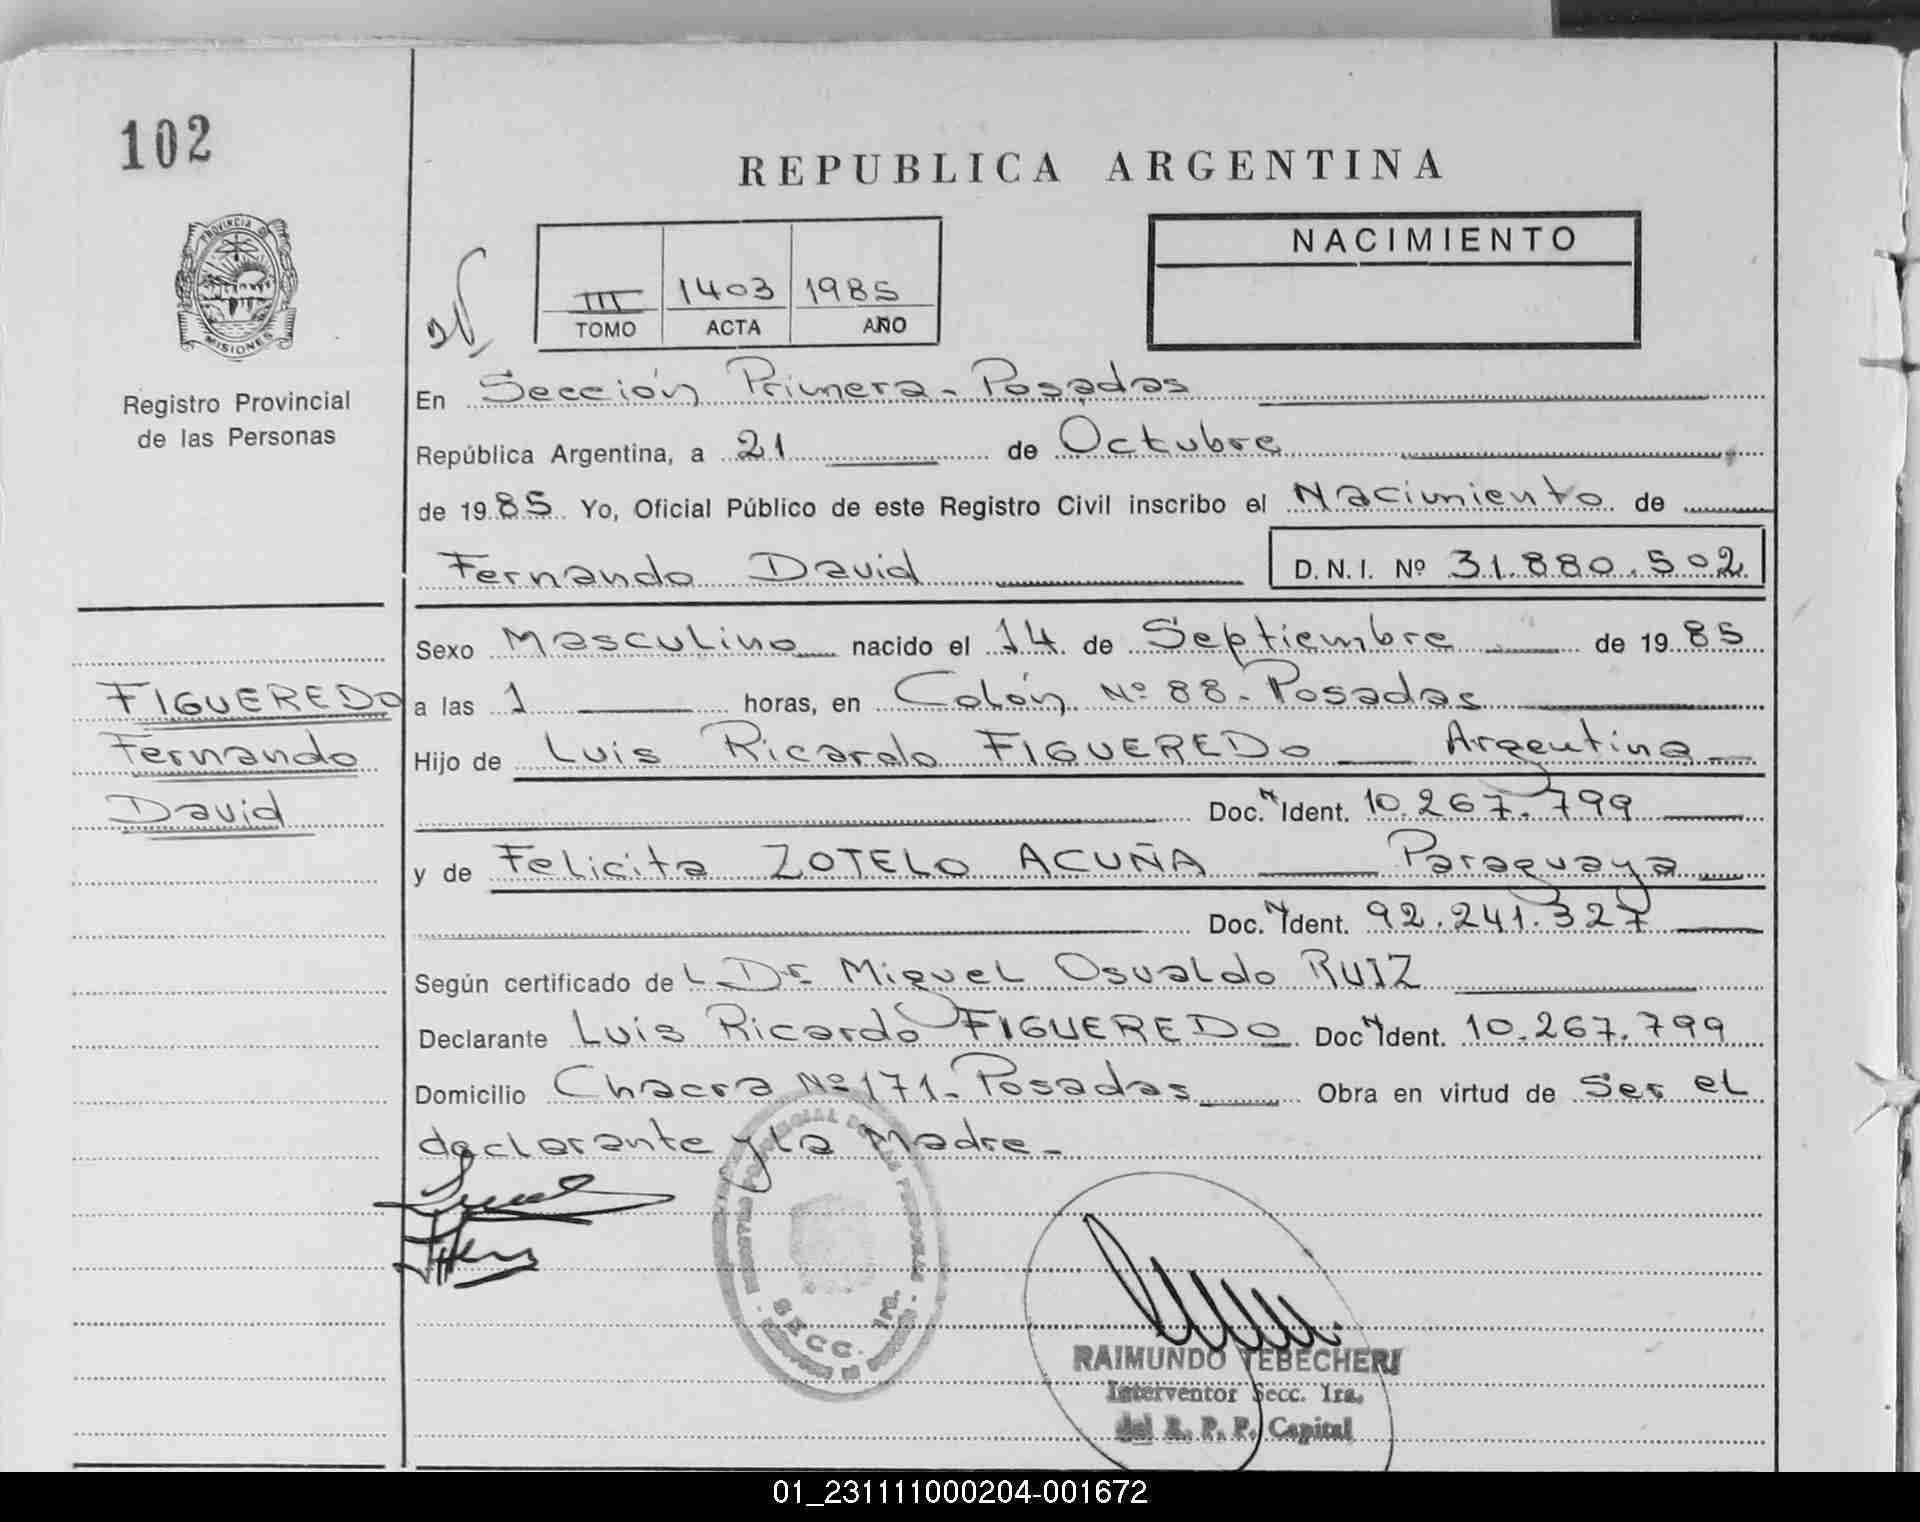 102
REPUBLICA ARGENTINA
PROVINCIA DE
MISIONES
Registro Provincial
de las Personas
III 1403 1985
TOMO ACTA AÑO
NACIMIENTO
En Sección Primera - Posadas
República Argentina, a 21 de Octubre
de 1985 Yo, Oficial Público de este Registro Civil inscribo el Nacimiento de
Fernando David D.N.I. Nº 31.880.502
Sexo Masculino nacido el 14 de Septiembre de 1985
FIGUEREDO
Fernando
David
a las 1 horas, en Colón Nº 88 - Posadas
Hijo de Luis Ricardo FIGUEREDO Argentina
Doc. N Ident. 10.267.799
y de Felicita ZOTELO ACUÑA Paraguaya
Doc. N Ident. 92.241.327
Según certificado de L Dr Miguel Osvaldo RUIZ
Declarante Luis Ricardo FIGUEREDO Doc N Ident. 10.267.799
Domicilio Chacra Nº 171 - Posadas Obra en virtud de Ser el
declarante y la Madre -
SECC. 1ra.
RAIMUNDO TEBECHERI
Interventor Secc. 1ra.
del R. P. P. Capital
01_231111000204-001672